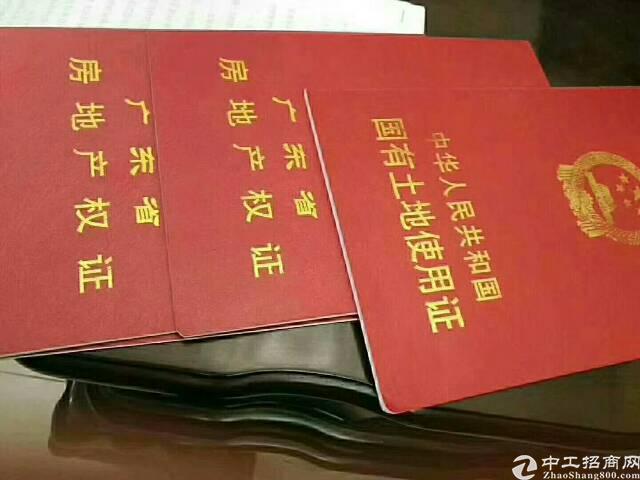 广东省
房地产权证
广东省
房地产权证
中华人民共和国
国有土地使用证
中工招商网
ZhaoShang800.com